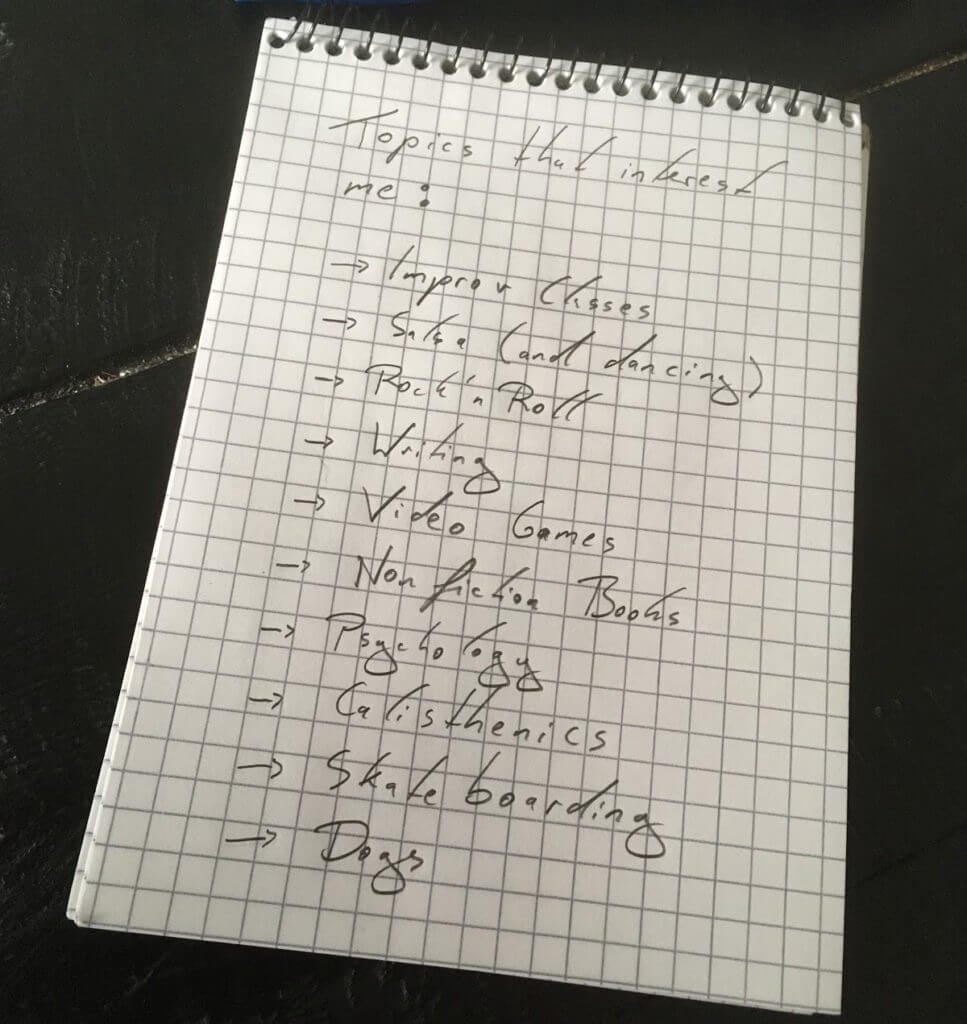 Topics that interest
me:
→ Improv Classes
→ Salsa (and dancing)
→ Rock'n Roll
→ Writing
→ Video Games
→ Non fiction Books
→ Psychology
→ Calisthenics
→ Skate boarding
→ Dogs